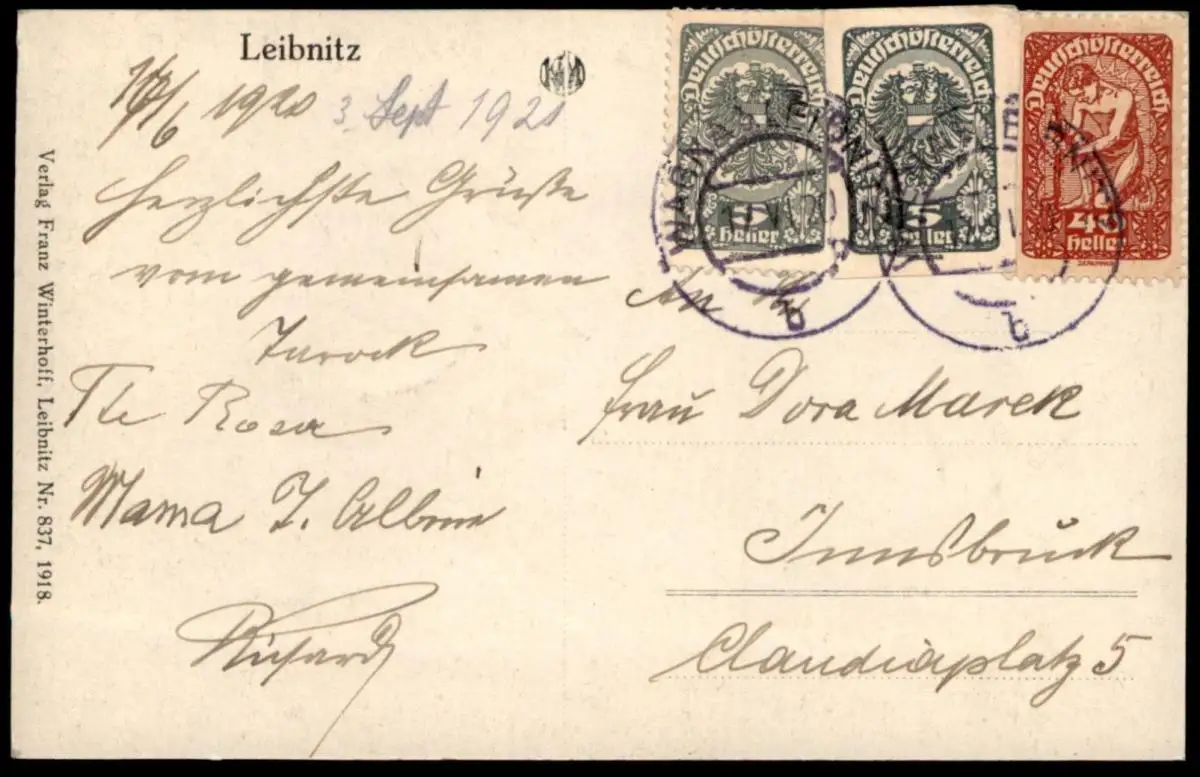 Leibnitz
17/6 1920 3. Sept 1921
Herzlichste Grüße
vom gemeinsamen
Tarock
Tte Rosa
Mama T. Albine
Richard
Verlag Franz Winterhoff, Leibnitz Nr. 837, 1918.
Deutschösterreich
5
heller
Deutschösterreich
5
heller
Deutschösterreich
40
heller
WAGNA LEIBNITZ
VI 20
b
b
An
Frau Dora Marek
Innsbruck
Claudiaplatz 5